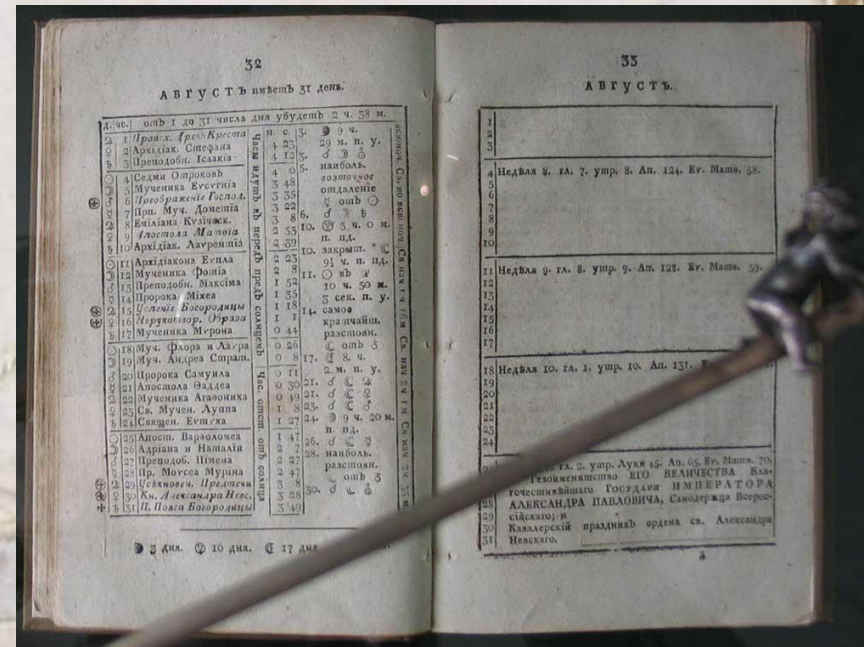 32
АВГУСТЪ имѣетъ 31 день.
Д. чс. отъ 1 до 31 числа дня убудетъ 2 ч. 38 м.
♃ 1 Произх. Древ. Креста
♀ 2 Архідіак. Стефана
♄ 3 Преподобн. Ісаакія
☉ 4 Седми Отроковъ
☽ 5 Мученика Евсугнія
♂ 6 Преображеніе Господ.
☿ 7 Прп. Муч. Дометія
♃ 8 Еміліана
♀ 9 Апостола Матѳія
♄ 10 Архідіак. Лаврентія
☉ 11 Архідіакона Еупла
☽ 12 Мученика Фотія
♂ 13 Преподобн. Максіма
☿ 14 Пророка Міхея
♃ 15 Успеніе Богородицы
♀ 16 Нерукотвор. Образа
♄ 17 Мученика Мѵрона
☉ 18 Муч. Флора и Лавра
☽ 19 Муч. Андреа Страт.
♂ 20 Пророка Самуила
☿ 21 Апостола Ѳаддеа
♃ 22 Мученика Агаѳоника
♀ 23 Св. Мучен. Луппа
♄ 24 Священ. Евтуха
☉ 25 Апост. Варѳоломеа
☽ 26 Адріана и Наталіи
♂ 27 Преподоб. Пімена
☿ 28 Пр. Моѵсеа Муріна
♃ 29 Усѣкновеч. Предтечи
♀ 30 Кн. Александра Невс.
♄ 31 П. Пояса Богородицы
Часы идутъ въ передъ предъ солнцемъ
Час. отст. отъ солнца
м. с.
4 23
4 12
4 0
3 48
3 35
3 22
3 8
2 53
2 39
2 23
2 8
1 52
1 35
1 18
1 1
0 44
0 26
0 8
0 11
0 30
0 49
1 8
1 27
1 47
2 7
2 27
2 47
3 8
3 28
3 49
3. 9 ч.
29 м. п. у.
3. ☌ ☽
5. наиболь.
восточное
отдаленіе
☿ отъ ☉
6. ☌ ☽ ♄
10. 3 ч. 0 м.
п. пд.
10. закрыт.
9½ ч. п. пд.
11. ☉ въ
10 ч. 50 м.
3 сек. п. у.
14. самое
кратчайш.
разстоян.
☾ отъ ♁
17. ☾ 8 ч.
2 м. п. у.
21. ☌ ☾ ♃
21. ☌ ☾ ♀
23. ☌ ☾ ♂
24. 9 ч. 20 м.
п. пд.
26. ☌ ☾ ☿
28. наиболь.
разстоян.
☾ отъ ♁
30. ☌ ☾
3 дня. 10 дня. ☾ 17 дня
33
АВГУСТЪ.
1
2
3
4 Недѣля 8. гл. 7. утр. 8. Ап. 124. Ев. Матѳ. 58.
5
6
7
8
9
10
11 Недѣля 9. гл. 8. утр. 9. Ап. 128. Ев. Матѳ. 59.
12
13
14
15
16
17
18 Недѣля 10. гл. 1. утр. 10. Ап. 131.
19
20
21
22
23
24
гл. 2. утр. Луки 45. Ап. 65. Ев. Матѳ. 70.
Тезоименитство ЕГО ВЕЛИЧЕСТВА Бла-
гочестивѣйшаго Государя ИМПЕРАТОРА
28 АЛЕКСАНДРА ПАВЛОВИЧА, Самодержца Всерос-
29 сійскаго; и
30 Кавалерскій праздникъ ордена св. Александра
31 Невскаго.